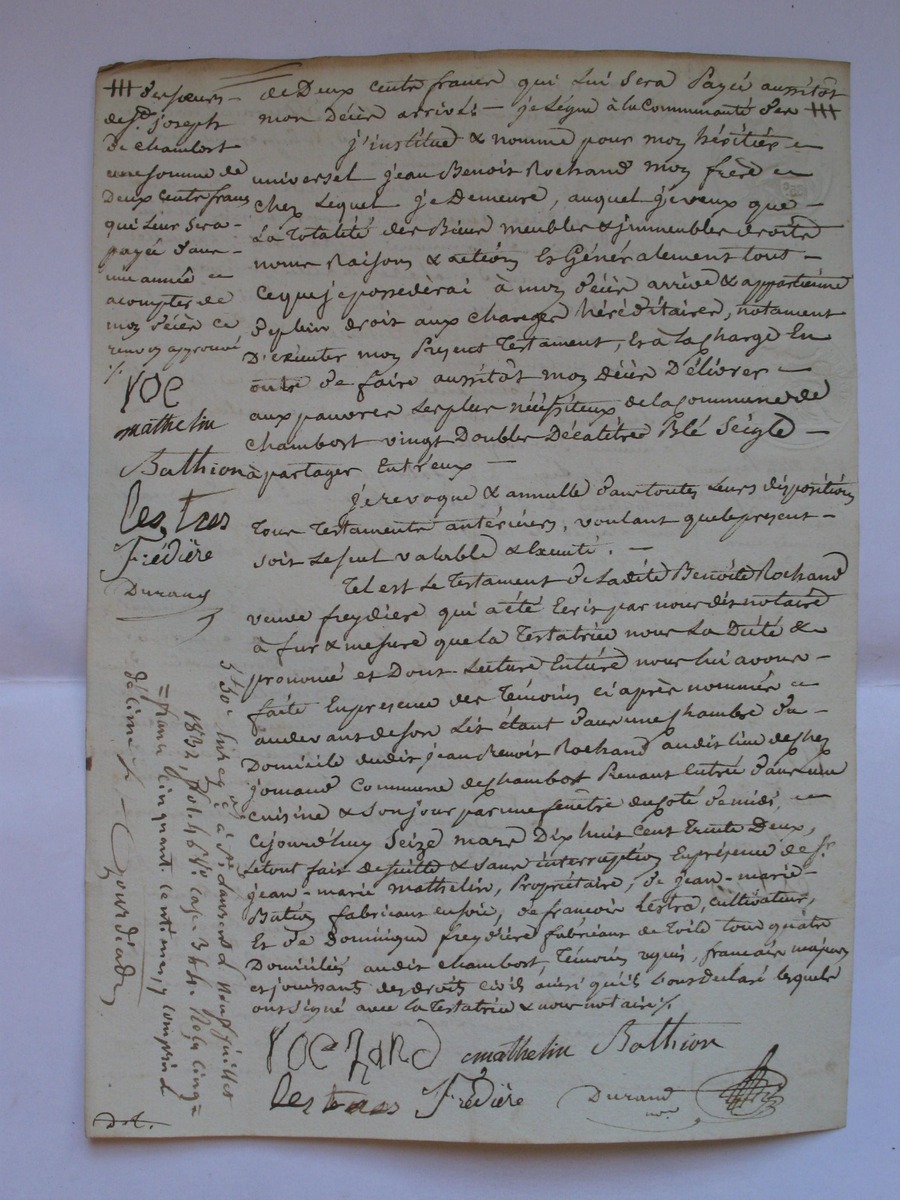 de Deux cents francs qui lui sera Payé aussitôt
mon Décès arrivé. — je Lègue à la Communauté des ###
j'institue & nomme pour mon héritier
universel jean Benoit Rochand mon frère
chez Lequel je Demeure, auquel je veux que —
La Totalité des Biens meubles & immeubles droits
noms Raisons & actions Et Généralement tout —
ce que je possèderai à mon décès arrivé & appartienne
de plein droit aux charges héréditaires, notament
D'exécuter mon Présent Testament, Et à La charge En
outre de faire aussitôt mon Décès Délivrer —
aux pauvres Les plus nécéssiteux de la commune de
chambost vingt Doubles Décalitres Blé Seigle —
à partager Entr'eux —
je revoque & annulle dans toutes Leurs dispositions
Tous Testaments antérieurs, voulant que le présent —
soit Le seul valable & Exécuté. —
Tel est Le Testament de Ladite Benoite Rochand
veuve freydiere qui a été Ecrit par nous dit notaire
à fur & mesure que la Testatrice nous La Dicté &
prononcé et Dont Lecture Entière nous lui avons —
faite En presence des Témoins ci après nommés
au devant de son Lit étant dans une chambre du
Domicile dudit jean Benoit Rochand audit lieu de chez
jomand Commune de chambost Prenant Entrée dans une
cuisine & son jour par une fenêtre du coté de midi,
Cejourd'huy Seize mars Dix huit cent trente Deux,
le tout fait de suite & sans interruption En présence de Sr.
jean-marie mathelin, Propriétaire, de jean-marie
Bation fabricant en soie, de francois Lestra, cultivateur,
Et de Dominique freydière fabricant de toile tous quatre
Domiciliés audit chambost, Témoins requis, francais majeurs
et jouissant des droits civils ainsi qu'ils L'ont déclaré lesquels
ont signé avec la Testatrice & nous notaire /.
rochand mathelin Bathion
les tras Frédière Durand
nore.
### des sœurs —
de St. joseph
de chambost
une somme de
Deux Cents francs
qui Leur Sera —
payée dans —
une année
a compter de
mon décès ce
renvoi approuvé
/.
roc
mathelin
Bathion
les tras
Frédière
Durand
Enregistré à St. Laurent Neuf juillet
1832, fol. 46 Vo. case 3 &4. Reçu cinq =
= francs cinquante centimes, y compris le
décime /. — Gourdiad